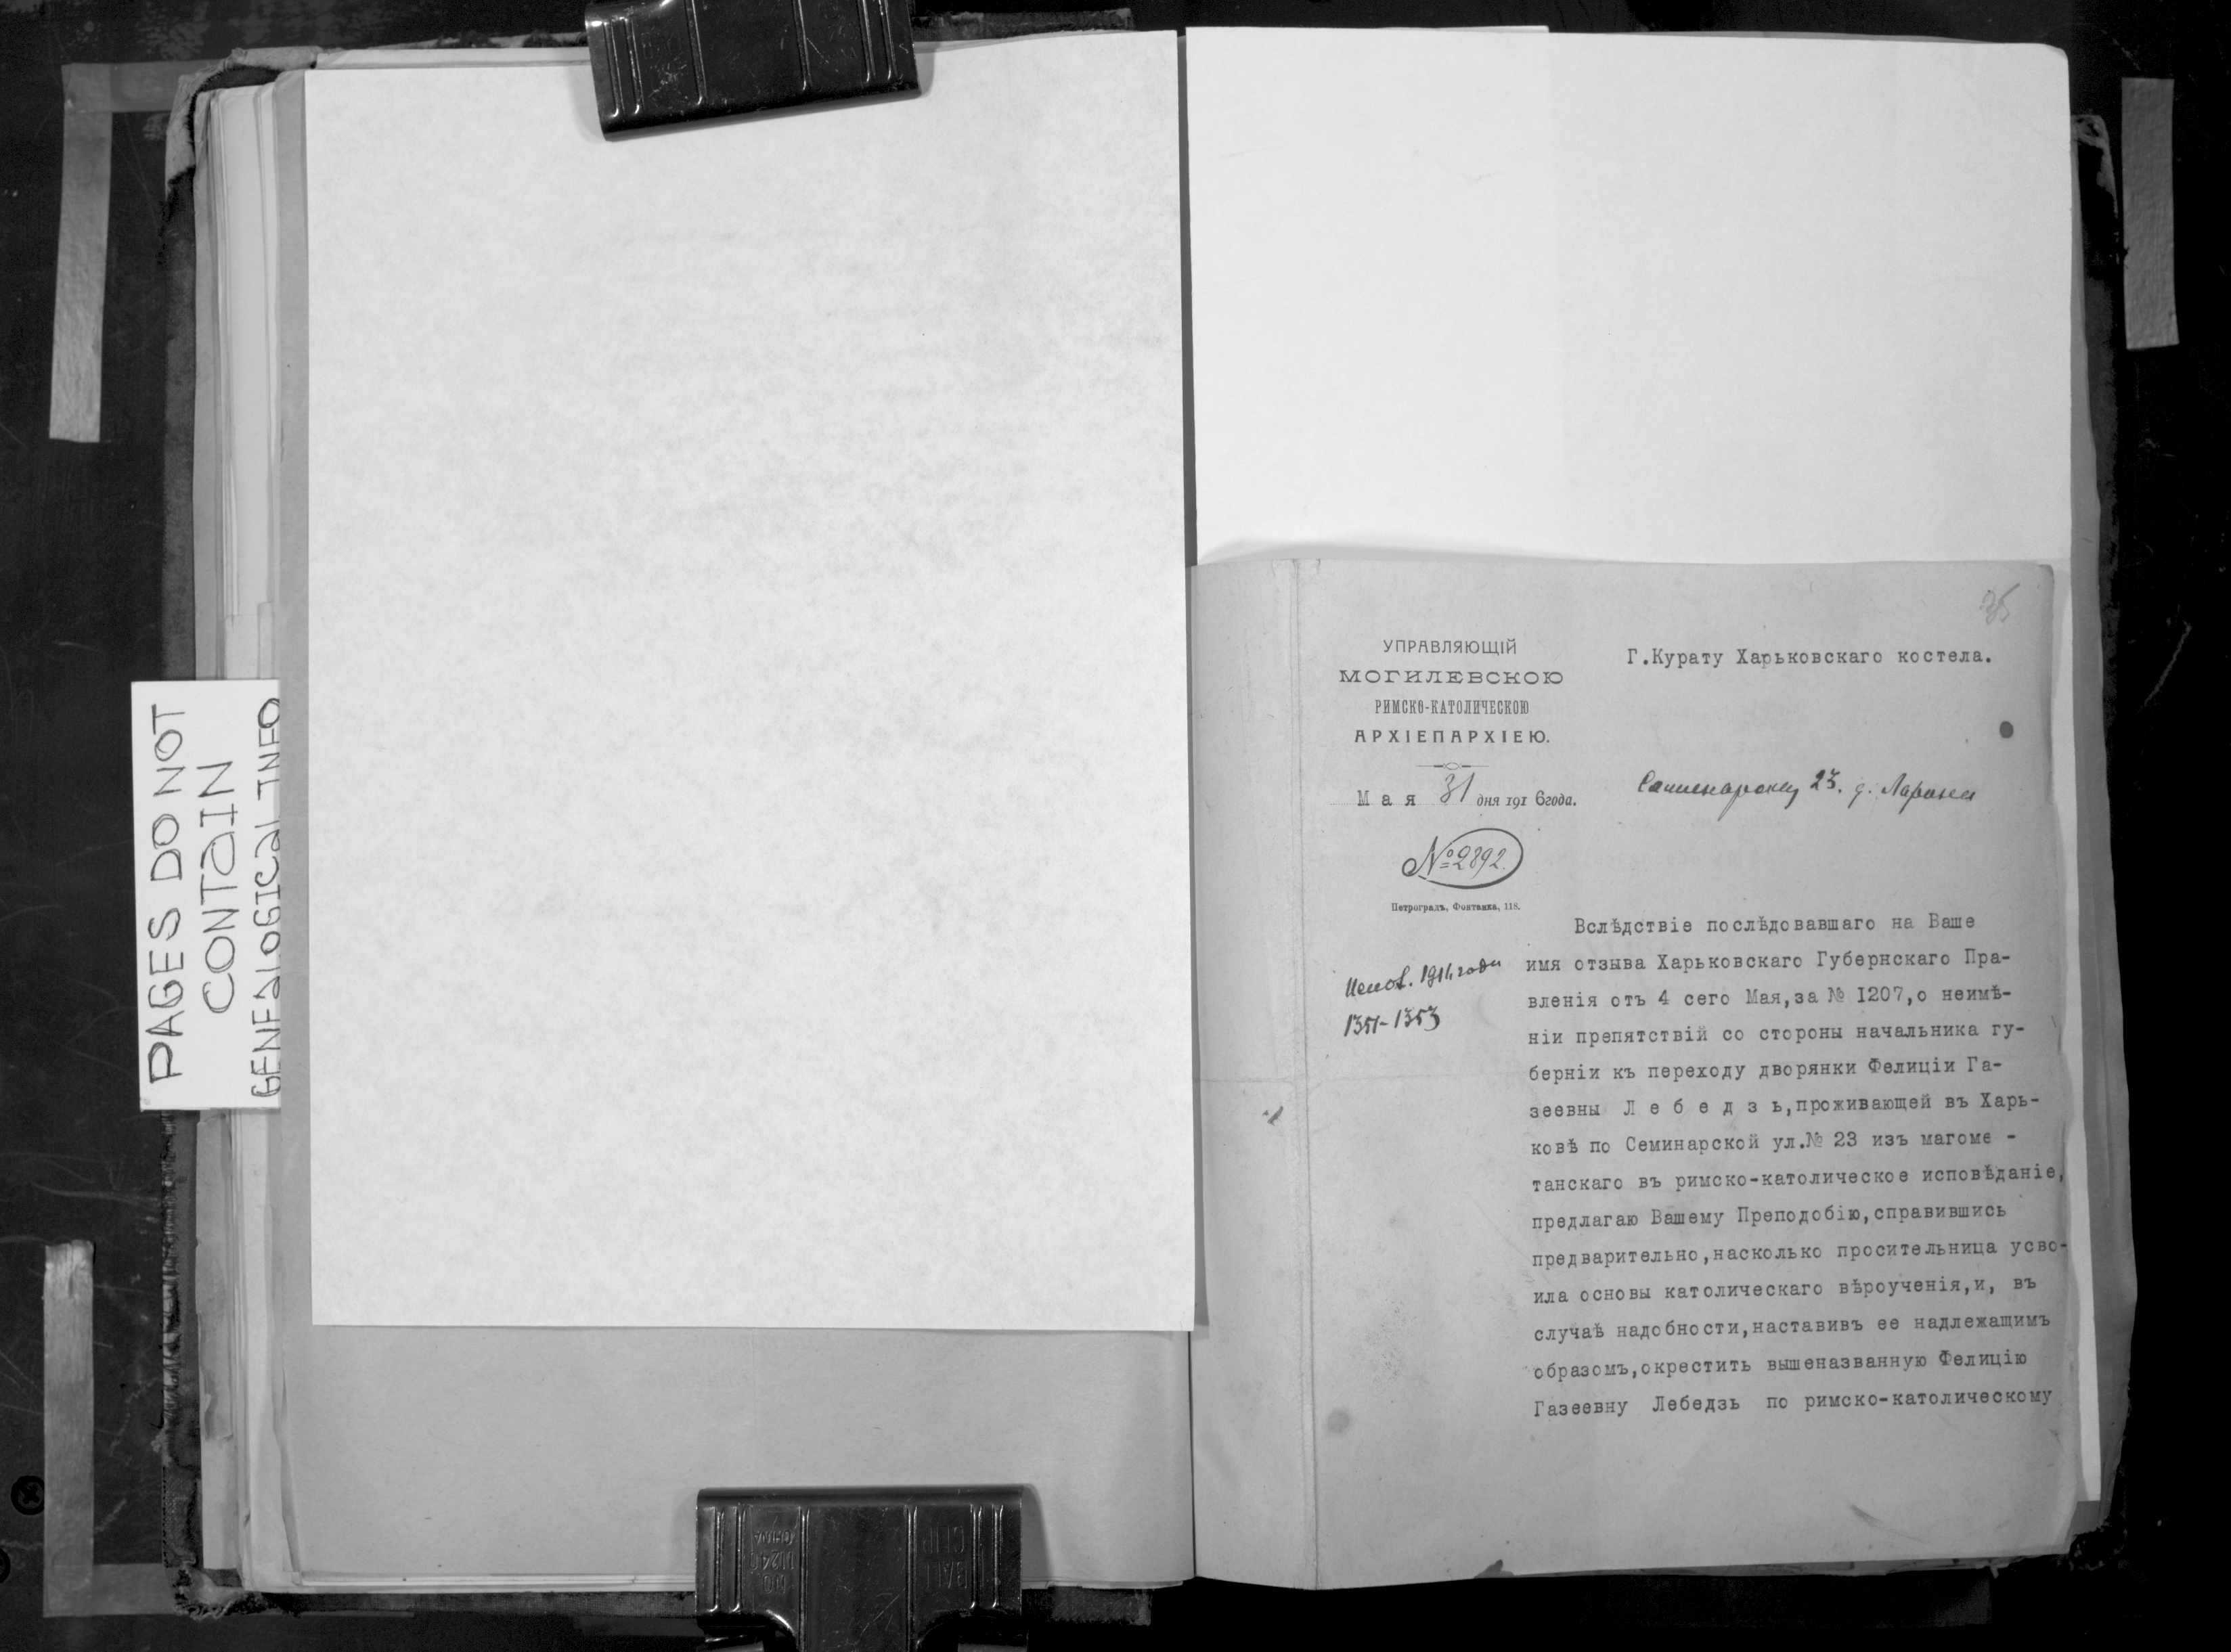 PAGES DO NOT
CONTAIN
GENEALOGICAL INFO
35
УПРАВЛЯЮЩІЙ
МОГИЛЕВСКОЮ
РИМСКО-КАТОЛИЧЕСКОЮ
АРХІЕПАРХІЕЮ.
Мая 31 дня 1916 года.
№ 2892.
Петроградъ, Фонтанка, 118.
Г.Курату Харьковскаго костела.
23. д.
1914 года
1351-1353
Вслѣдствіе послѣдовавшаго на Ваше
имя отзыва Харьковскаго Губернскаго Пра-
вленія отъ 4 сего Мая,за № I207,о неимѣ-
ніи препятствій со стороны начальника гу-
берніи къ переходу дворянки Фелиціи Га-
зеевны Л е б е д з ь,проживающей въ Харь-
ковѣ по Семинарской ул.№ 23 изъ магоме -
танскаго въ римско-католическое исповѣданіе,
предлагаю Вашему Преподобію,справившись
предварительно,насколько просительница усво-
ила основы католическаго вѣроученія,и, въ
случаѣ надобности,наставивъ ее надлежащимъ
образомъ,окрестить вышеназванную Фелицію
Газеевну Лебедзь по римско-католическому
BALL
CLIP
NO
1124C
CHINA